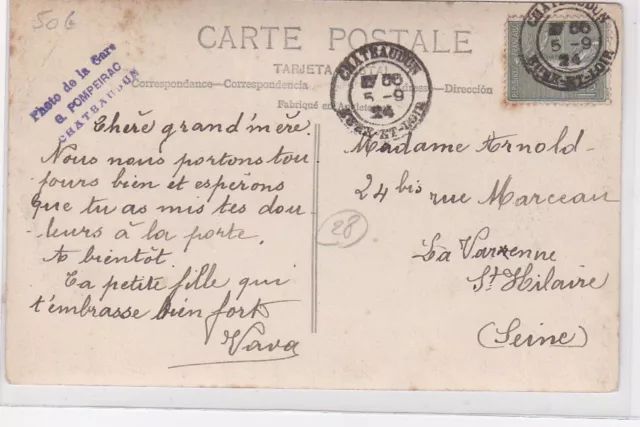 50€
CARTE POSTALE
TARJETA POSTAL
Correspondance - Correspondencia
Adresse - Dirección
Fabriqué en
Photo de la Gare
G. POMPEIRAC
CHATEAUDUN
CHATEAUDUN
5 - 9
24
EURE-ET-LOIR
CHATEAUDUN
5 - 9
24
EURE-ET-LOIR
Chère grand'mère
Nous nous portons tou
jours bien et espérons
que tu as mis tes dou
leurs à la porte.
A bientôt.
Ta petite fille qui
t'embrasse bien fort
Vava
28
Madame Arnold
24 bis rue Marceau
La Varenne
St Hilaire
(Seine)